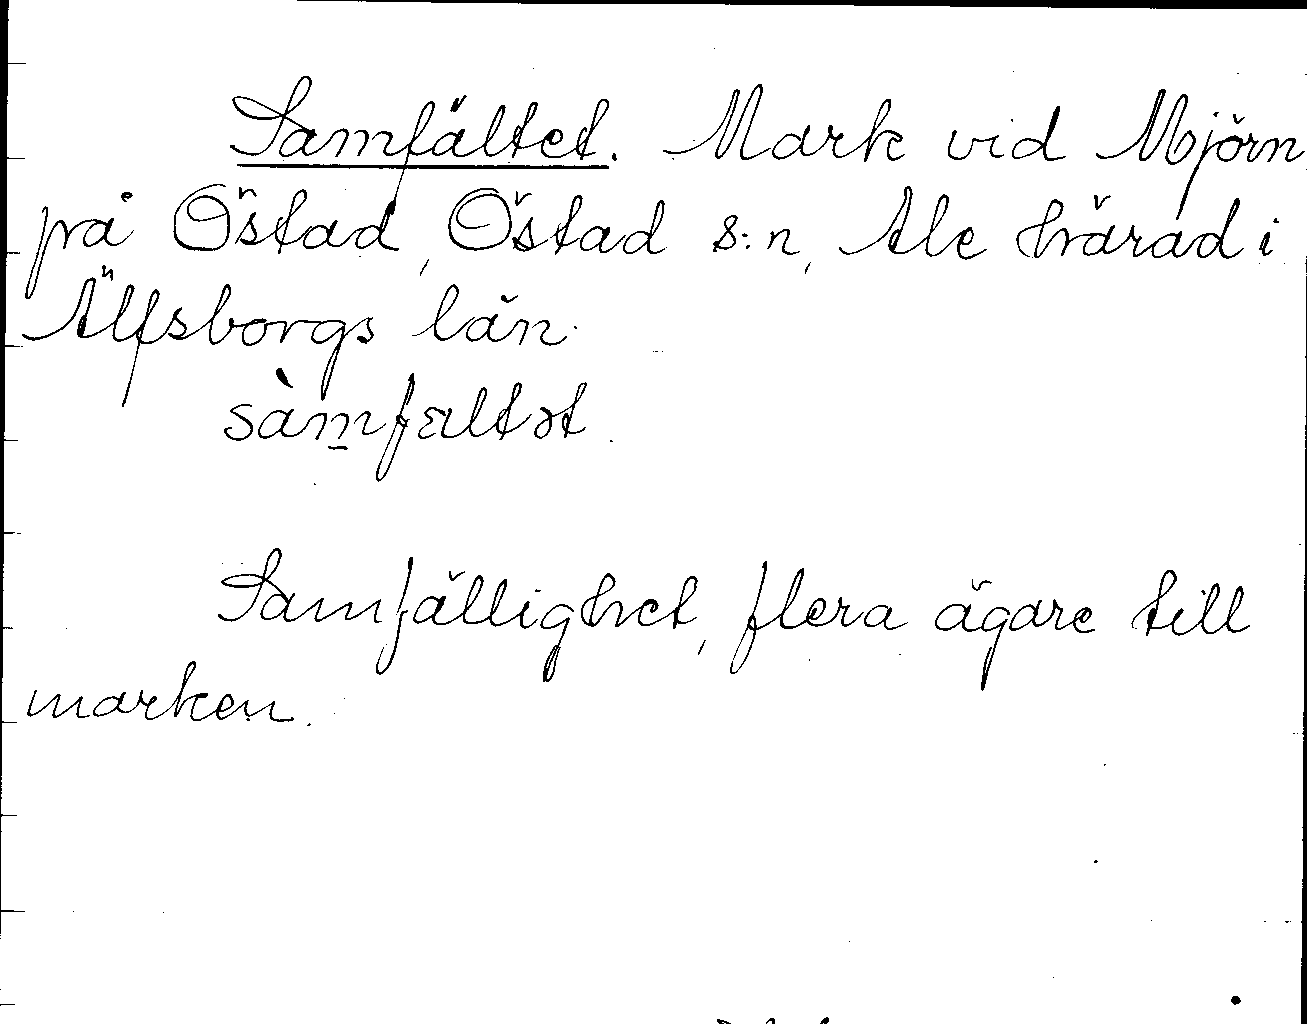 Samfältet. Mark vid Mjörn
på Östad, Östad s:n, Ale härad i
Älfsborgs län.
sàm̲fæltət.
Samfällighet, flera ägare till
marken.